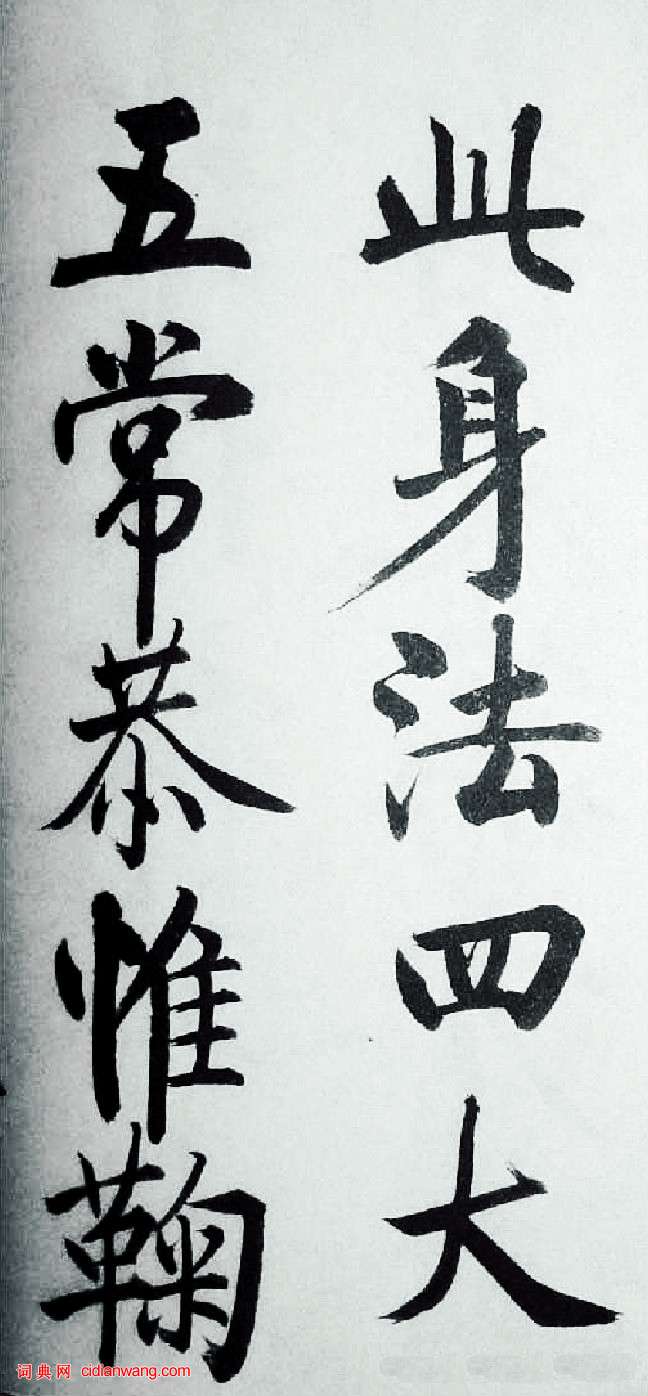 此身法四大
五常恭惟鞠
词典网 cidianwang.com